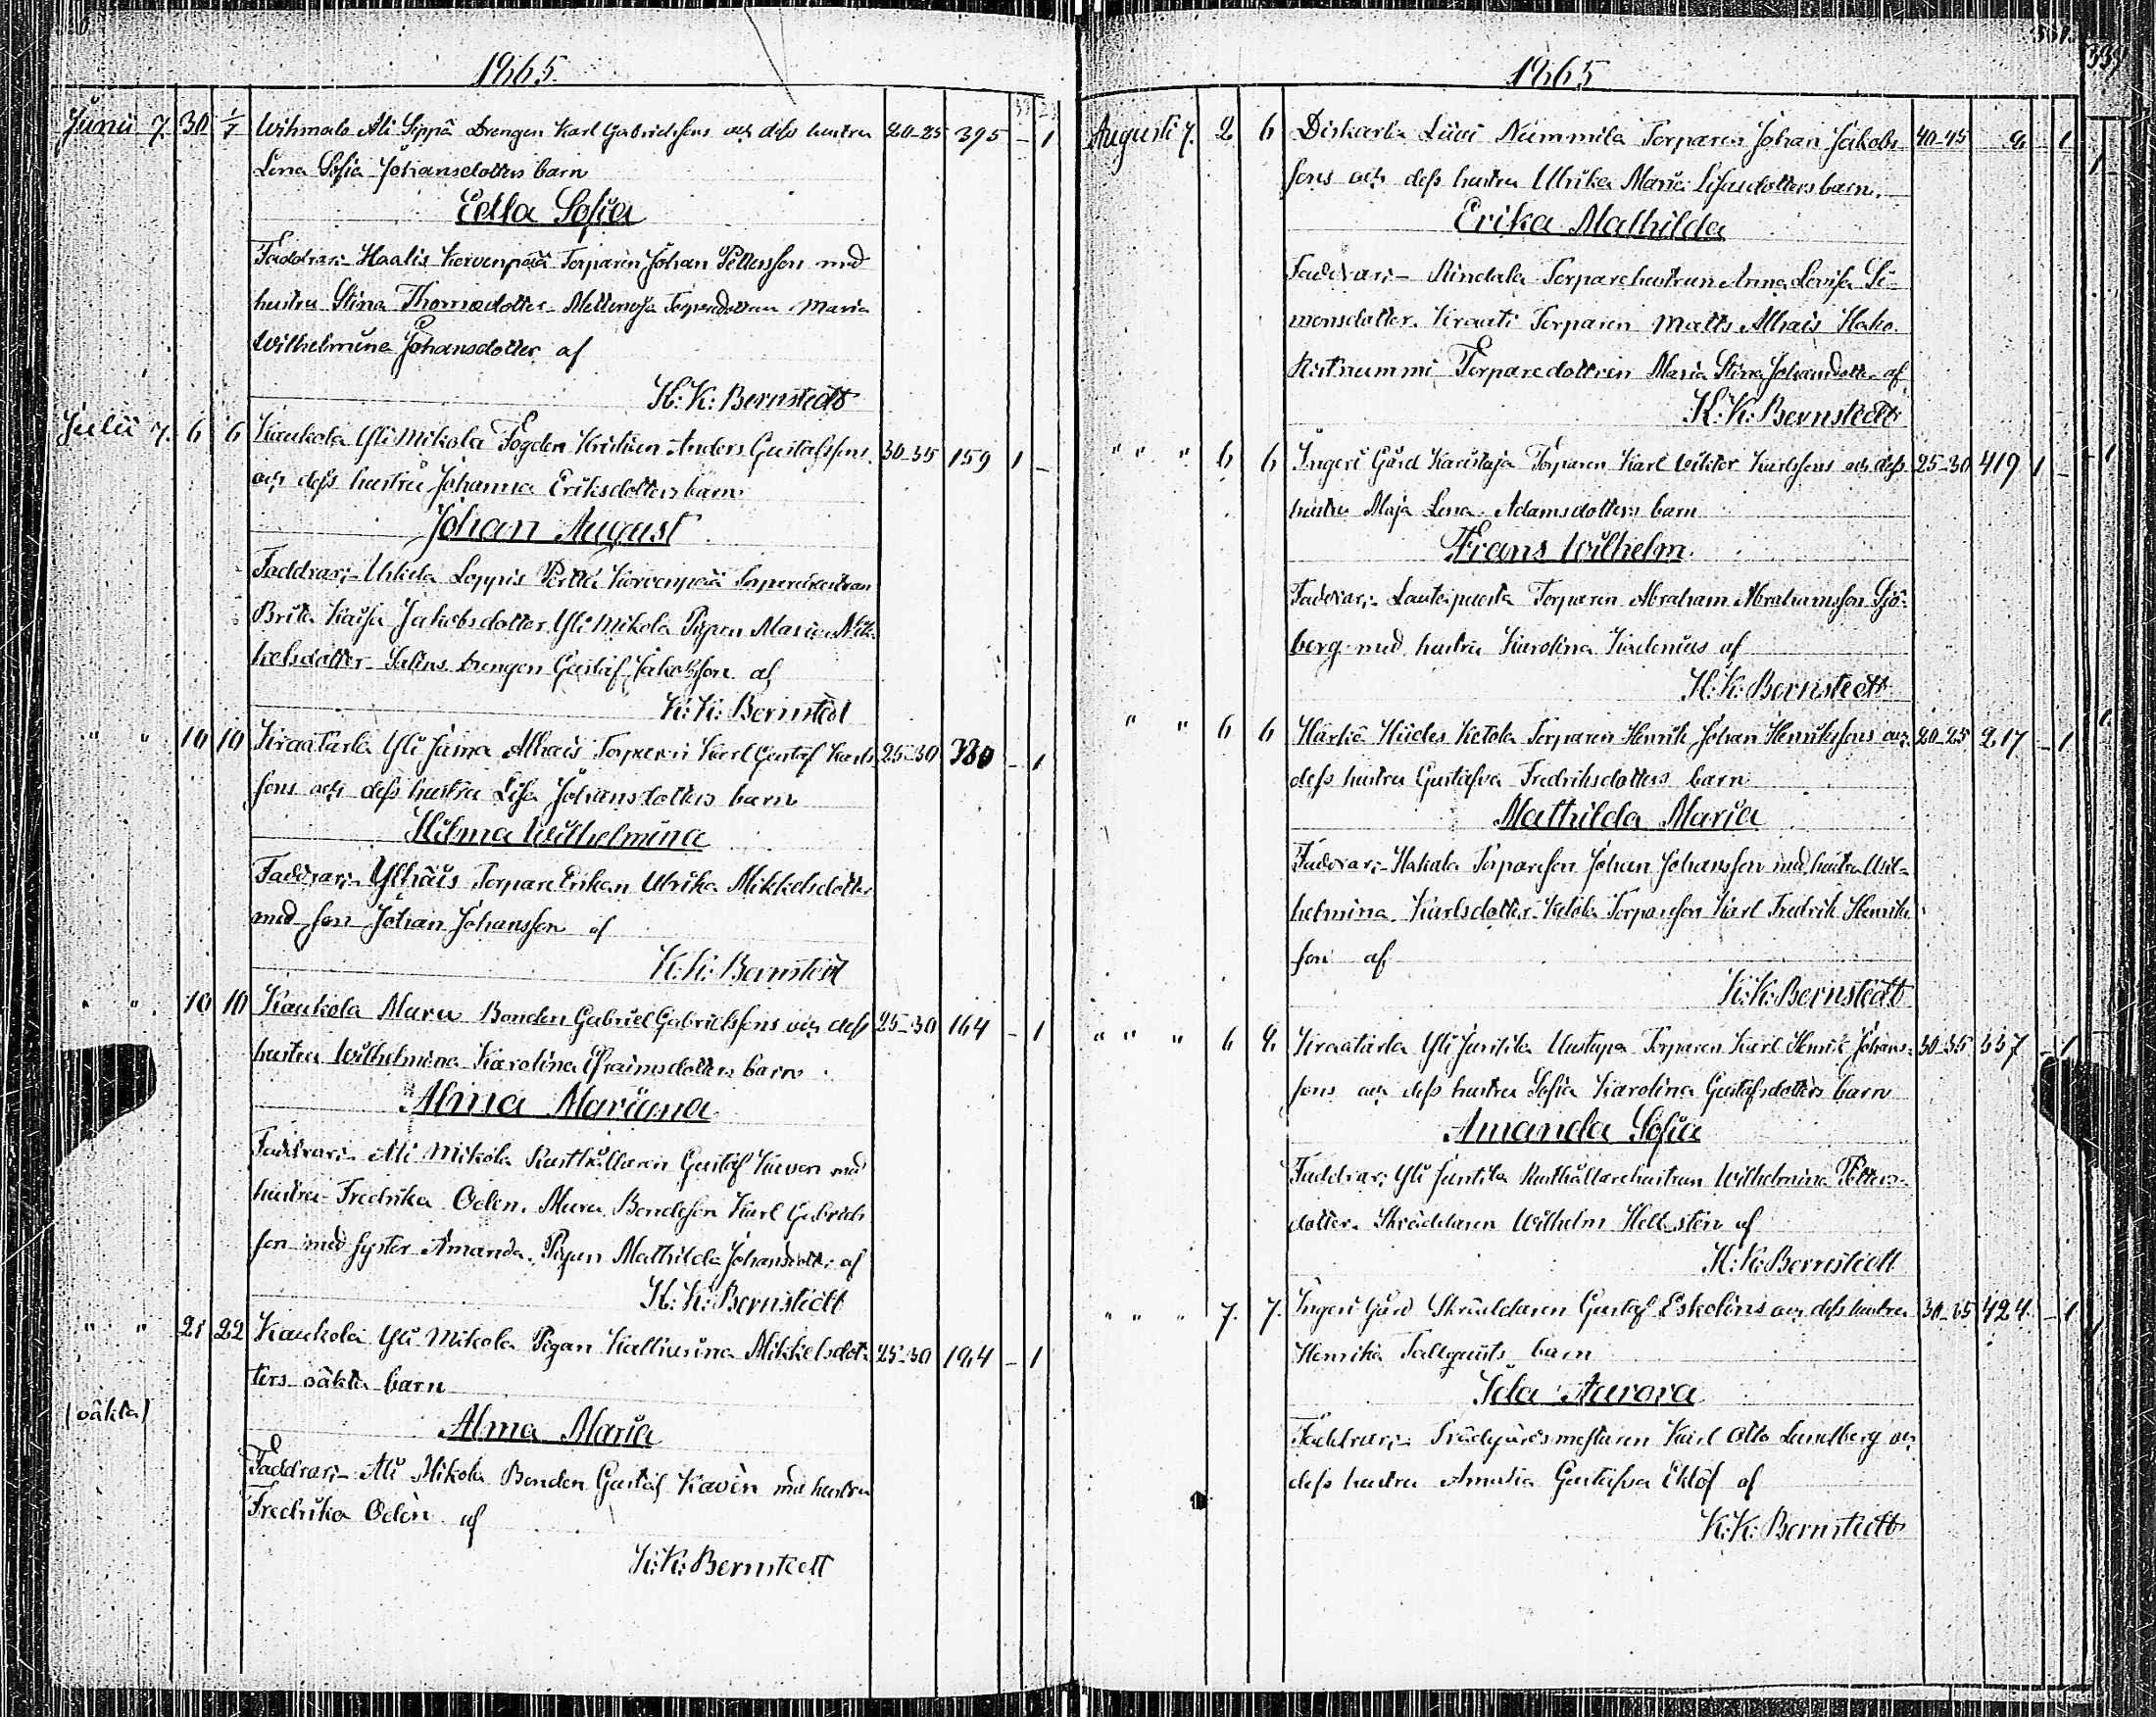 1865.
Junii 7. 30 1/7 Wihmalo Ali Sippå Drengen Karl Gabrielssons och dess hustru 20-25 395 - 1
Lena Sofia Johansdotters barn
Edla Sofia
Faddrar:- Haalis Korvenpää Torparen Johan Pettersson med
hustru Stina Thomasdotter Torparedottren Maria
Wilhelmina Johansdotter af
K: K: Bernstedt
Julii 7. 6 6 Kaukola Yli Mikola Fogden Kristian Anders Gustafssons 30-35 159 1 -
och dess hustru Johanna Eriksdotters barn
Johan August
Faddrar:- Loppis Perttu Korvenpää Torparehustrun
Brita Kaisa Jakobsdotter Yli Mikola Pigan Maria Mik-
kelsdotter drengen Gustaf Jakobsson af
K: K: Bernstedt
" " 10 10 Kraatarla Yli Alhais Torparen Karl Gustaf Karls- 25-30 380 - 1
sons och dess hustru Lisa Johansdotters barn
Hilma Wilhelmina
Faddrar:- Ylhäis Torpare Enkan Ulrika Mikkelsdotter
med son Johan Johansson af
K: K: Bernstedt
" " 10 10 Kaukola Muru Bonden Gabriel Gabrielssons och dess 25-30 164 - 1
hustru Wilhelmina Karolina Efraimsdotters barn
Alma Mariana
Faddrar:- Ali Mikola Rusthållaren Gustaf Kaven med
hustru Fredrika Oden. Muru Bondeson Karl Gabriels-
son med syster Amanda. Pigan Mathilda Johansdotter af
K: K: Bernstedt
" " 21 22 Kaukola Yli Mikola Pigan Mikkelsdot- 25-30 194 - 1
ters oäkta barn
(oäkta)
Alma Maria
Faddrar:- Ali Mikola Bonden Gustaf Kavèn med hustru
Fredrika Odèn af
K: K: Bernstedt
1865
Augusti 7. 2 6 Diskarla Liuci Nummila Torparen Johan Jakobs- 40-45 - 1
sons och dess hustru Ulrika Maria Lisasdotters barn.
Erika Mathilda
Faddrar:- Rindala Torparehustrun Anna Lovisa Si-
monsdotter. Kraati Torparen Matts Alhais Hako.
Torparedottren Maria Stina Johansdotter af
K: K: Bernstedt
" " " 6 6 Ingeri Gård Karistoja Torparen Karl Wiktor Karlssons och dess 25-30 419 1 -
hustru Maja Lena Adamsdotters barn
Frans Wilhelm.
Faddrar:- Torparen Abraham Abrahamsson Sjö-
berg med hustru Karolina Kadenius af
K: K: Bernstedt
" " 6 6 Härkä Ketola Torparen Henrik Johan Henrikssons och 20-25 217 - 1
dess hustru Gustafva Fredriksdotters barn
Mathilda Maria
Faddrar:- Hakala Torpareson Johan Johansson med hustru Wil-
helmina Karlsdotter. Ketola Torpareson Karl Fredrik Henriks-
son af
K: K: Bernstedt
" " " 6 Kraatarla Yli Junttila Torparen Karl Henrik Johans- 30-35 337 - 1
sons och dess hustru Sofia Karolina Gustafsdotters barn
Amanda Sofia
Faddrar:- Yli Junttila Rusthållarehustrun Wilhelmina Petters-
dotter. Skräddaren Wilhelm Hellstén af
K: K: Bernstedt
" " " 7. 7. Ingeri Gård Skräddaren Gustaf Eskolins och dess hustru 30-35 424 - 1
Henrika Tallqvists barn
Ida Aurora
Faddrar:- Trädgårdsmestaren Karl Otto Lundberg och
dess hustru Amalia Gustafva Eklöf af
K: K: Bernstedt